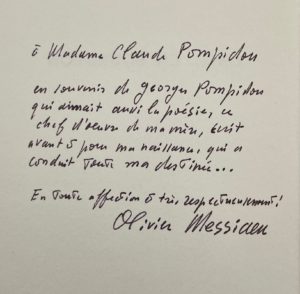 à Madame Claude Pompidou
en souvenir de georges Pompidou
qui aimait aussi la poésie, ce
chef d'oeuvre de ma mère, écrit
avant et pour ma naissance, qui a
conduit toute ma destinée...
En toute affection et très respectueusement!
Olivier Messiaen